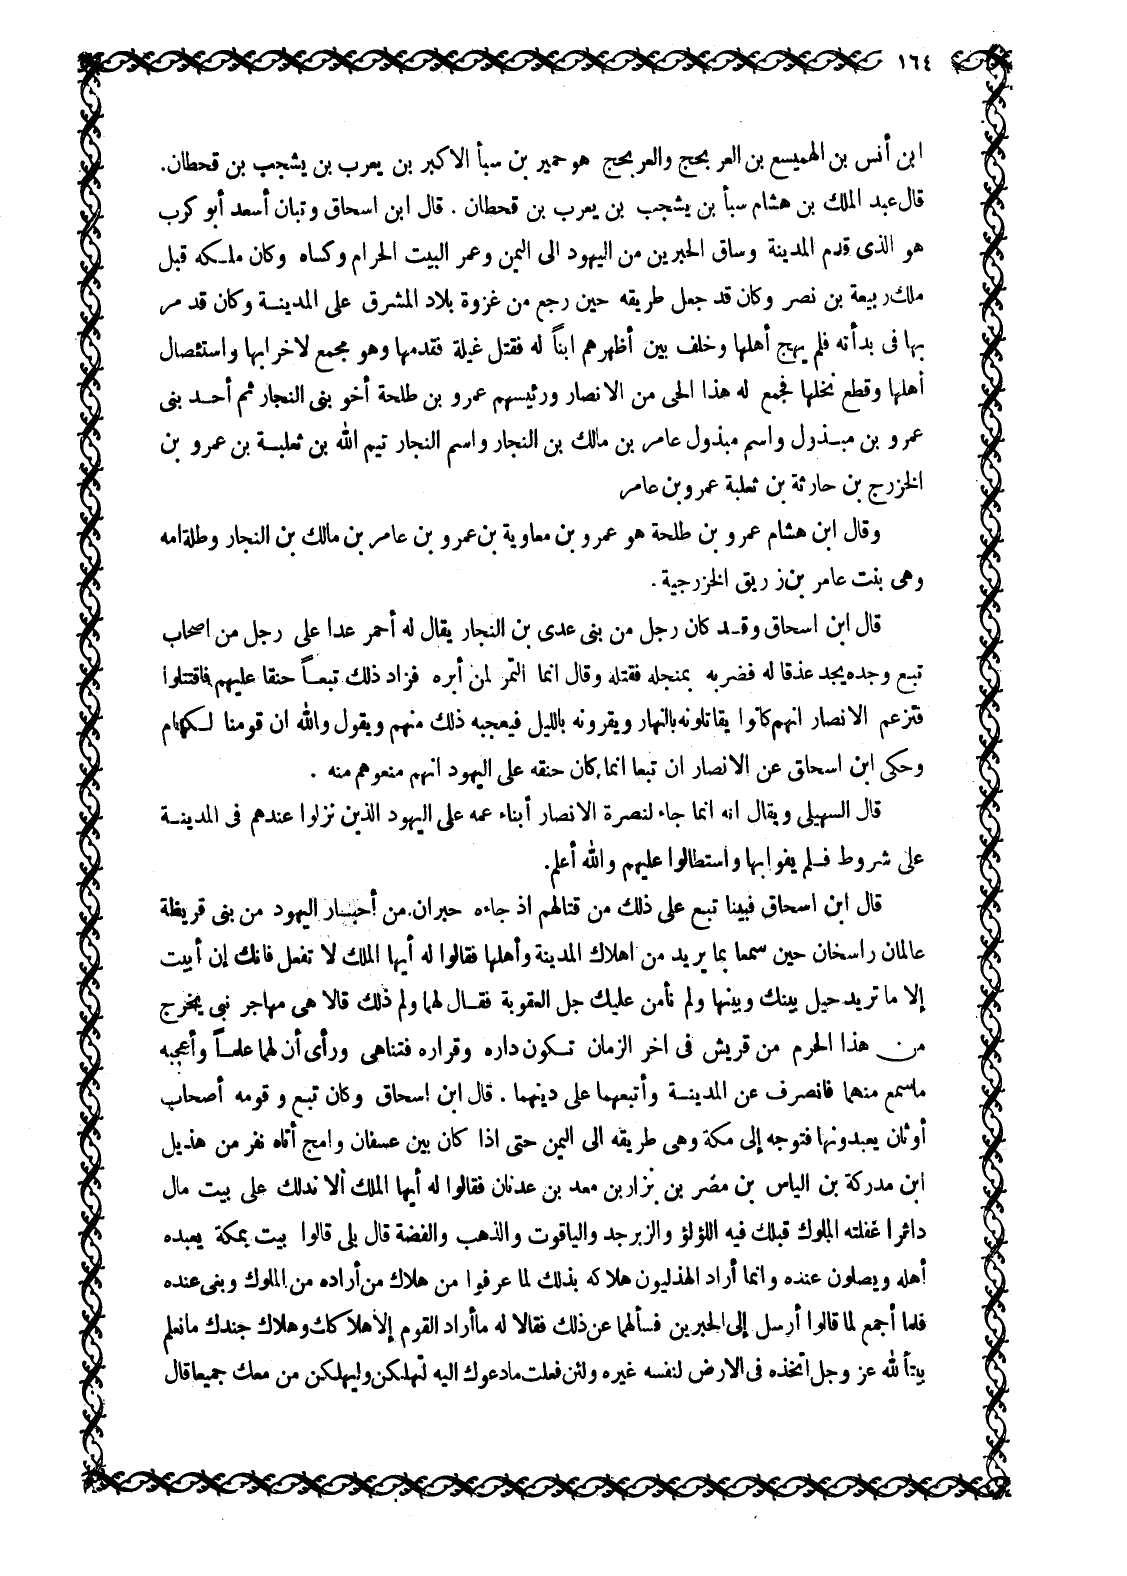 ١٦٤
ابن أنس بن الهميسع بن العربحج والعربحج هو حمير بن سبأ الاكبر بن يعرب بن يشجب بن قحطان.
قال عبد الملك بن هشام سبأ بن يشجب بن يعرب بن قحطان . قال ابن اسحاق وتبان أسعد أبو كرب
هو الذى قدم المدينة وساق الحبرين من اليهود الى اليمن وعمر البيت الحرام وكساه وكان ملكه قبل
ملك ربيعة بن نصر وكان قد جعل طريقه حين رجع من غزوة بلاد المشرق على المدينة وكان قد مر
بها فى بدأته فلم يهج أهلها وخلف بين أظهرهم ابناً له فقتل غيلة فقدمها وهو مجمع لاخرابها واستئصال
أهلها وقطع نخلها فجمع له هذا الحى من الانصار ورئيسهم عمرو بن طلحة أخو بنى النجار ثم أحد بنى
عمرو بن مبذول واسم مبذول عامر بن مالك بن النجار واسم النجار تيم الله بن ثعلبة بن عمرو بن
الخزرج بن حارثة بن ثعلبة عمرو بن عامر
وقال ابن هشام عمرو بن طلحة هو عمرو بن معاوية بن عمرو بن عامر بن مالك بن النجار وطلة امه
وهى بنت عامر بن زريق الخزرجية .
قال ابن اسحاق وقد كان رجل من بنى عدى بن النجار يقال له أحمر عدا على رجل من اصحاب
تبع وجده يجد عذقا له فضربه بمنجله فقتله وقال انما التمر لمن أبره فزاد ذلك تبعاً حنقا عليهم فاقتتلوا
فتزعم الانصار انهم كانوا يقاتلونه بالنهار ويقرونه بالليل فيعجبه ذلك منهم ويقول والله ان قومنا لكرام
وحكى ابن اسحاق عن الانصار ان تبعا انما كان حنقه على اليهود انهم منعوهم منه .
قال السهيلى ويقال انه انما جاء لنصرة الانصار أبناء عمه على اليهود الذين نزلوا عندهم فى المدينة
على شروط فلم يفوا بها واستطالوا عليهم والله أعلم.
قال ابن اسحاق فبينا تبع على ذلك من قتالهم اذ جاءه حبران من أحبار اليهود من بنى قريظة
عالمان راسخان حين سمعا بما يريد من اهلاك المدينة وأهلها فقالوا له أيها الملك لا تفعل فانك إن أبيت
إلا ما تريد حيل بينك وبينها ولم نأمن عليك جل العقوبة فقال لهما ولم ذلك قالا هى مهاجر نبى يخرج
من هذا الحرم من قريش فى اخر الزمان تكون داره وقراره فتناهى ورأى أن لهما علماً وأعجبه
ماسمع منهما فانصرف عن المدينة وأتبعهما على دينهما . قال ابن اسحاق وكان تبع و قومه أصحاب
أوثان يعبدونها فتوجه إلى مكة وهى طريقه الى اليمن حتى اذا كان بين عسفان وامج أتاه نفر من هذيل
ابن مدركة بن الياس بن مضر بن نزار بن معد بن عدنان فقالوا له أيها الملك ألا ندلك على بيت مال
داثر اغفلته الملوك قبلك فيه اللؤلؤ والزبرجد والياقوت والذهب والفضة قال بلى قالوا بيت بمكة يعبده
أهله ويصلون عنده وانما أراد الهذليون هلاكه بذلك لما عرفوا من هلاك من أراده من الملوك وبنى عنده
فلما أجمع لما قالوا أرسل إلى الحبرين فسألهما عن ذلك فقالا له ماأراد القوم إلا هلاكك وهلاك جندك مانعلم
بيتاً لله عز وجل اتخذه فى الارض لنفسه غيره ولئن فعلت مادعوك اليه لتهلكن وليهلكن من معك جميعا قال